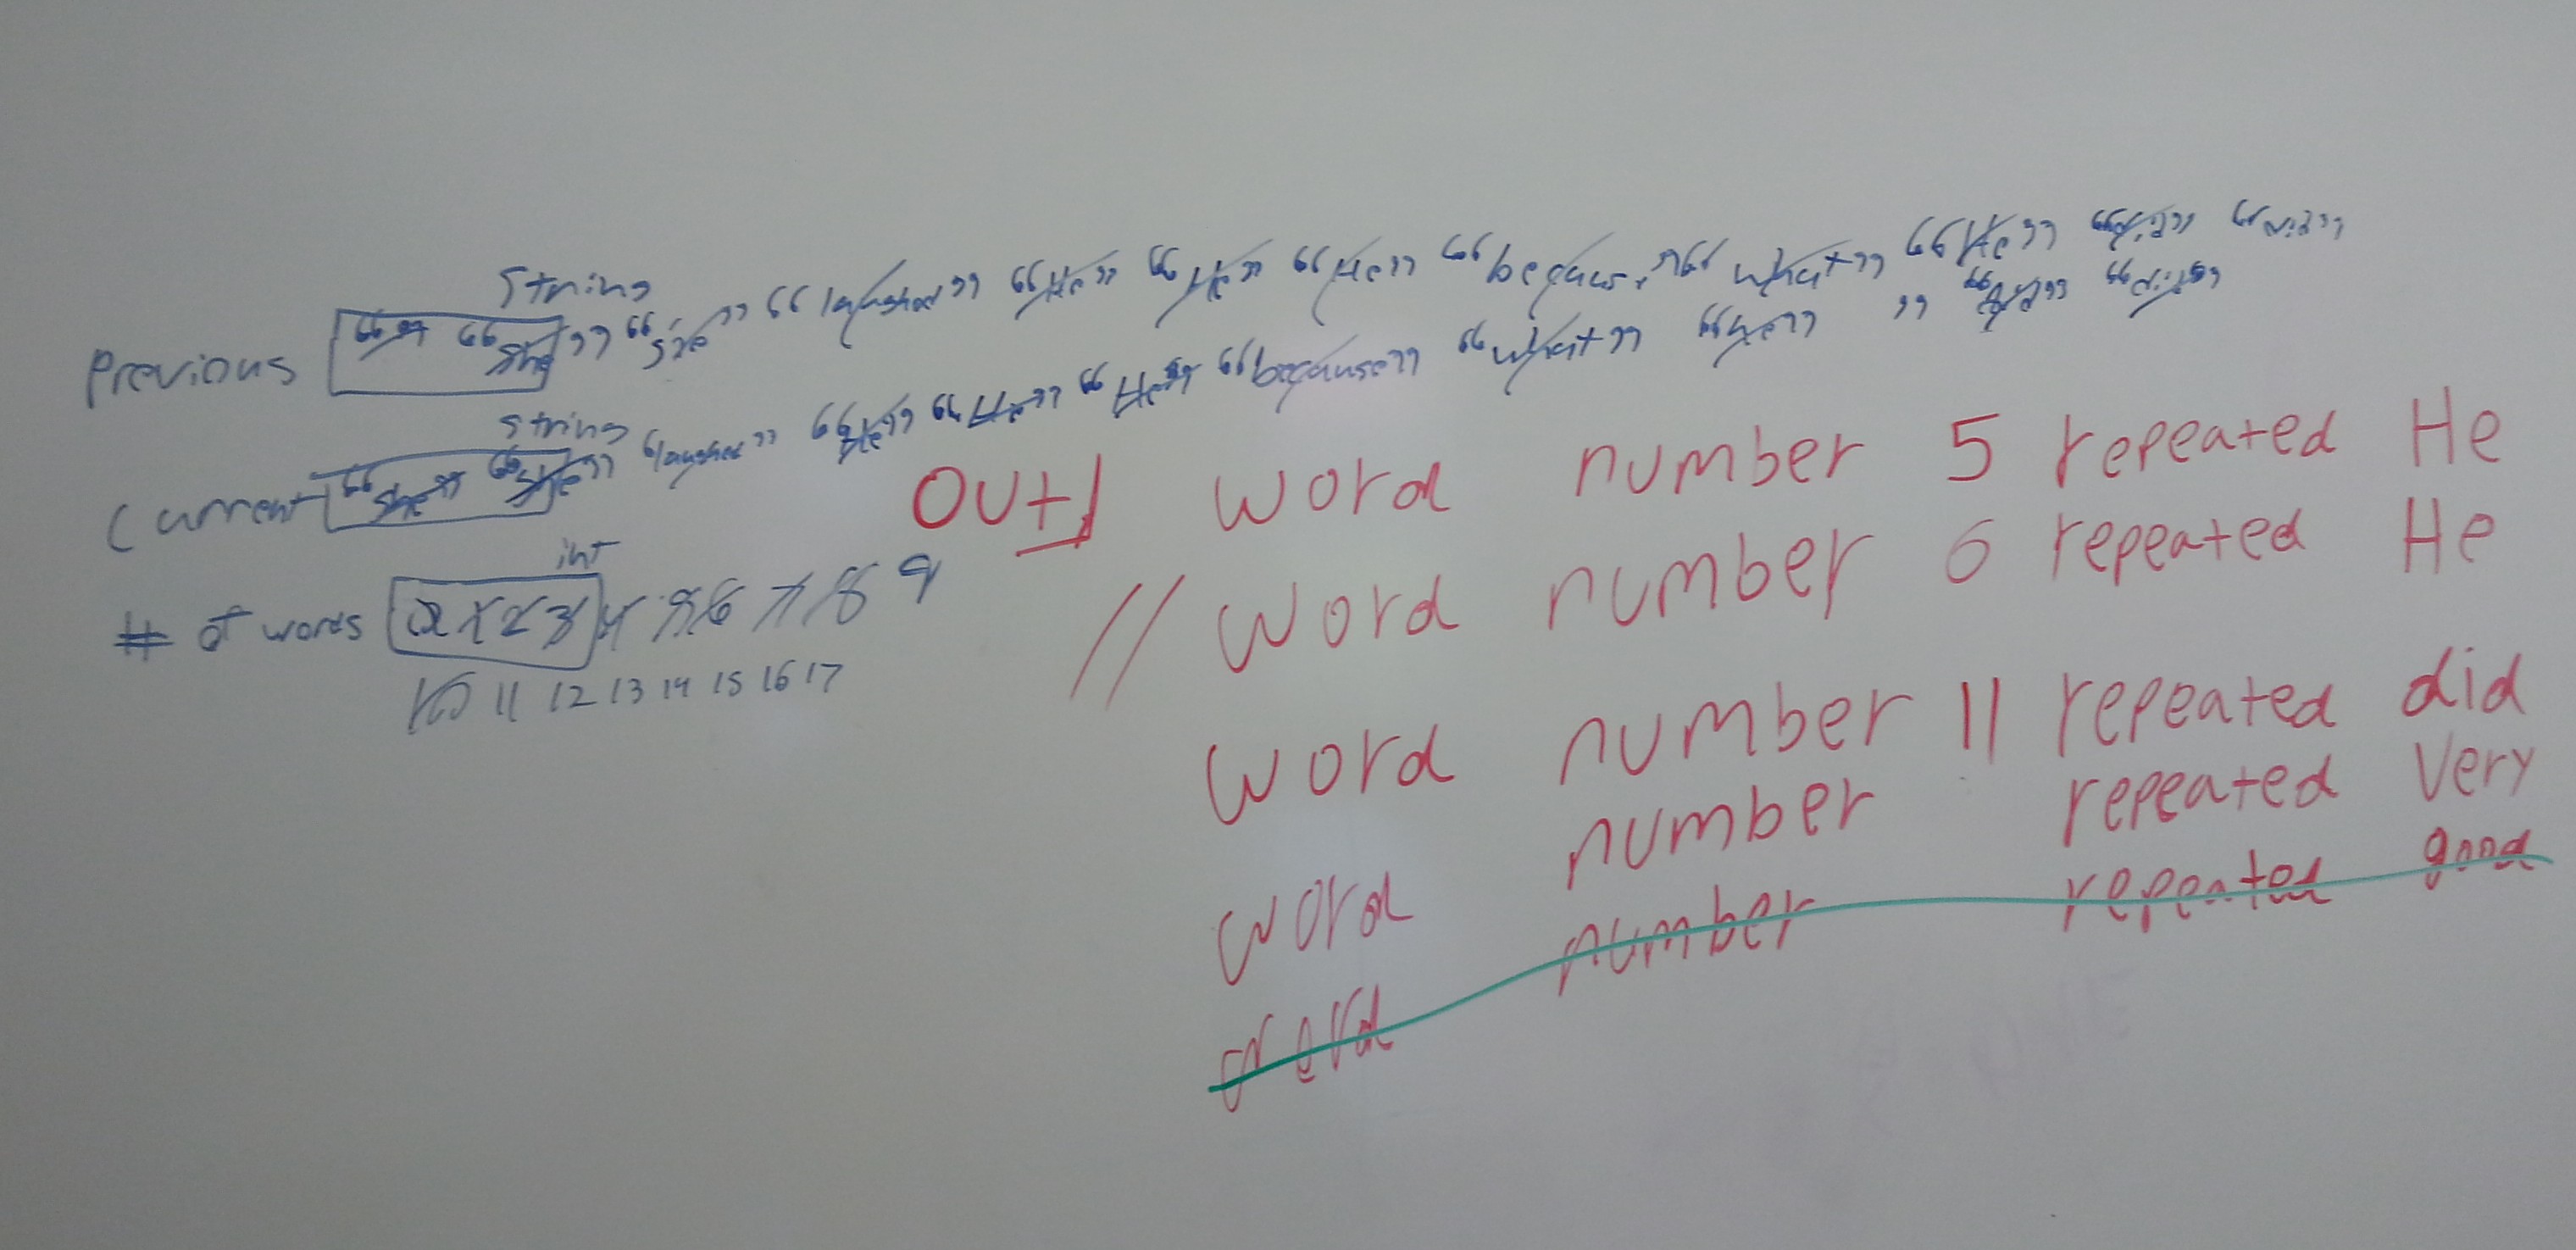 string
Previous " " "she" "she" "laughed" "He" "He" "He" "because" "what" "He" "did" "did"
string
Current "she" "she" "laughed" "He" "He" "He" "because" "what" "He" " "did" "did"
int
# of words 0 1 2 3 4 5 6 7 8 9
10 11 12 13 14 15 16 17
OUT word number 5 repeated He
// word number 6 repeated He
word number 11 repeated did
word number repeated very
word number repeated good